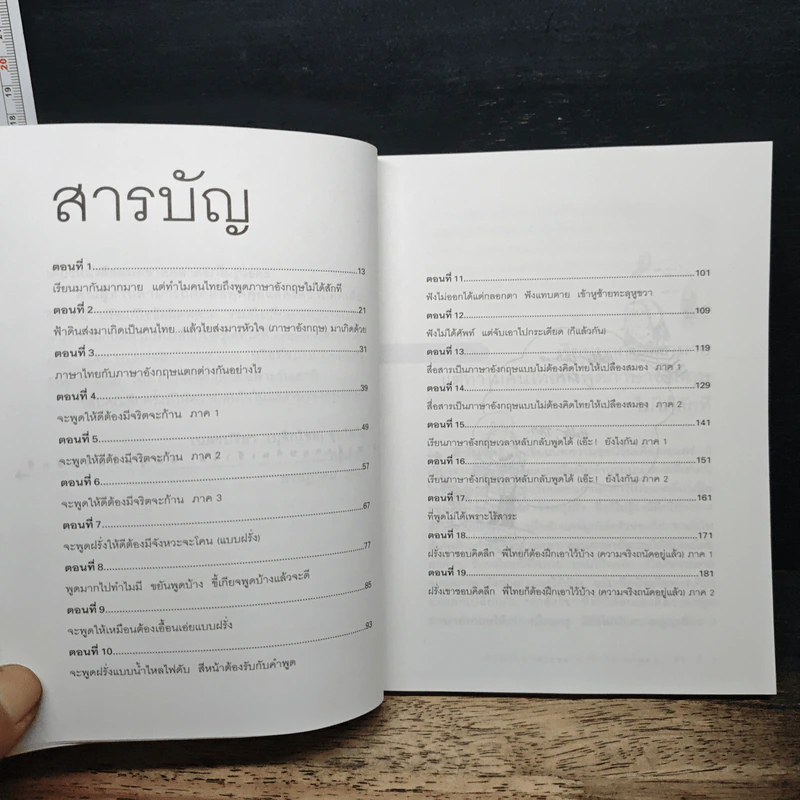 20
19
18
สารบัญ
ตอนที่ 1................13
เรียนมากันมากมาย แต่ทำไมคนไทยถึงพูดภาษาอังกฤษไม่ได้สักที
ตอนที่ 2................21
ฟ้าดินส่งมาเกิดเป็นคนไทย...แล้วใยส่งมารหัวใจ (ภาษาอังกฤษ) มาเกิดด้วย
ตอนที่ 3................31
ภาษาไทยกับภาษาอังกฤษแตกต่างกันอย่างไร
ตอนที่ 4................39
จะพูดให้ดีต้องมีจริตจะก้าน ภาค 1
ตอนที่ 5................49
จะพูดให้ดีต้องมีจริตจะก้าน ภาค 2
ตอนที่ 6................57
จะพูดให้ดีต้องมีจริตจะก้าน ภาค 3
ตอนที่ 7................67
จะพูดฝรั่งให้ดีต้องมีจังหวะจะโคน (แบบฝรั่ง)
ตอนที่ 8................77
พูดมากไปทำไมมี ขยันพูดบ้าง ขี้เกียจพูดบ้างแล้วจะดี
ตอนที่ 9................85
จะพูดให้เหมือนต้องเอื้อนเอ่ยแบบฝรั่ง
ตอนที่ 10................93
จะพูดฝรั่งแบบน้ำไหลไฟดับ สีหน้าต้องรับกับคำพูด
ตอนที่ 11................101
ฟังไม่ออกได้แต่กลอกตา ฟังแทบตาย เข้าหูซ้ายทะลุหูขวา
ตอนที่ 12................109
ฟังไม่ได้ศัพท์ แต่จับเอาไปกระเดียด (ก็แล้วกัน)
ตอนที่ 13................119
สื่อสารเป็นภาษาอังกฤษแบบไม่ต้องคิดไทยให้เปลืองสมอง ภาค 1
ตอนที่ 14................129
สื่อสารเป็นภาษาอังกฤษแบบไม่ต้องคิดไทยให้เปลืองสมอง ภาค 2
ตอนที่ 15................141
เรียนภาษาอังกฤษเวลาหลับกลับพูดได้ (เอ๊ะ! ยังไงกัน) ภาค 1
ตอนที่ 16................151
เรียนภาษาอังกฤษเวลาหลับกลับพูดได้ (เอ๊ะ! ยังไงกัน) ภาค 2
ตอนที่ 17................161
ที่พูดไม่ได้เพราะไร้สาระ
ตอนที่ 18................171
ฝรั่งเขาชอบคิดลึก พี่ไทยก็ต้องฝึกเอาไว้บ้าง (ความจริงถนัดอยู่แล้ว) ภาค 1
ตอนที่ 19................181
ฝรั่งเขาชอบคิดลึก พี่ไทยก็ต้องฝึกเอาไว้บ้าง (ความจริงถนัดอยู่แล้ว) ภาค 2